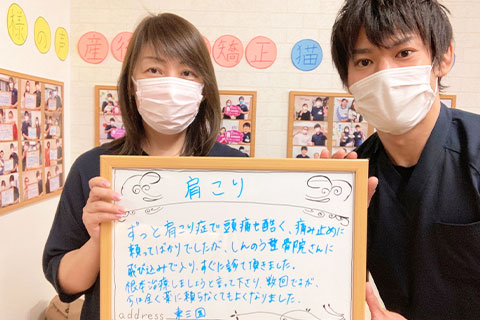 様の声
産後
矯正
猫
肩こり
ずっと肩こり症で頭痛も酷く、痛み止めに
頼ってばかりでしたが、しんのう整骨院さんに
飛び込みで入り、すぐに診て頂きました。
根本治療しましょうと言って下さり、数回ですが、
今は全く薬に頼らなくてもよくなりました。
address 東三国